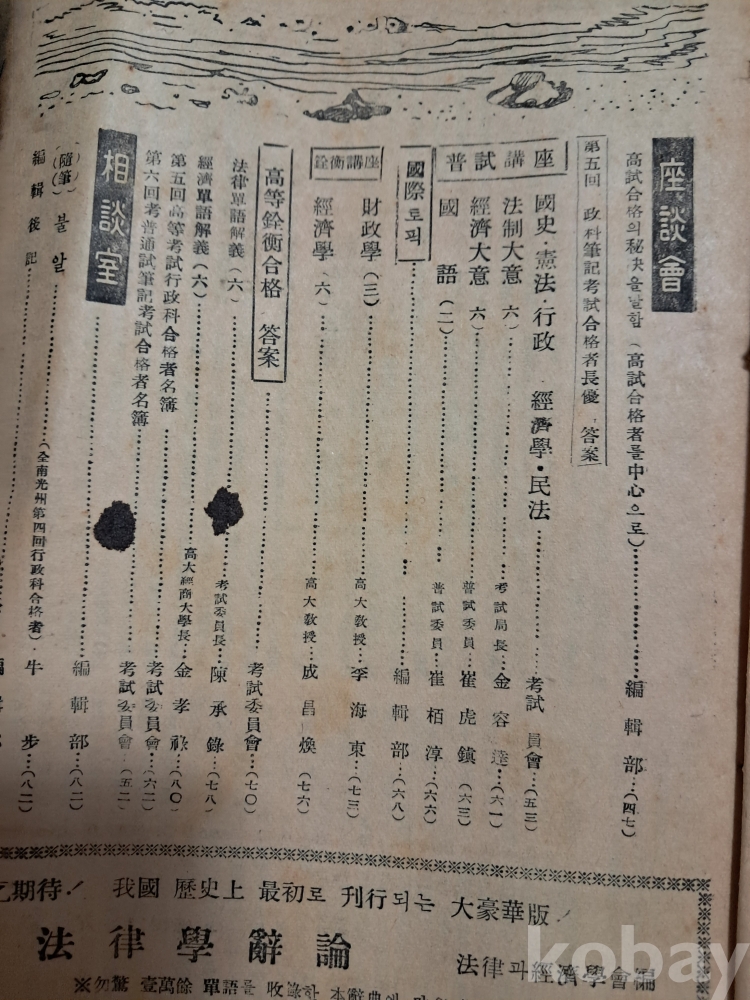 座談會
高試合格의秘訣을말함(高試合格者를中心으로)……編輯部…(四七)
第五回 政科筆記考試合格者長優 答案
國史·憲法·行政 經濟學·民法……考試 員會…(五三)
普試講座
法制大意 六)……考試局長…金容達…(六一)
經濟大意 六)……普試委員…崔虎鎭…(六三)
國語(二)……普試委員…崔栢淳…(六六)
國際토픽……編輯部…(六八)
銓衡講座
財政學(三)……高大敎授…李海東…(七三)
經濟學(六)……高大敎授…成昌煥(七六)
高等銓衡合格 答案……考試委員會…(七〇)
法律單語解義(六)……考試委員長…陳承錄…(七八)
經濟單語解義(六)……高大經商大學長…金孝祿…(八〇)
第五回高等考試行政科合格者名簿……考試委員會…(六二)
第六回考普通試筆記考試合格者名簿……考試委員會…(五二)
相談室……編輯部…(八二)
(隨筆)불알……(全南光州第四回行政科合格者)·牛步…(八二)
編輯後記……
期待! 我國 歷史上 最初로 刊行되는 大豪華版!
法律學辭論 法律과經濟學會編
※勿驚 壹萬餘 單語를 收錄한 本辭典에
kobay